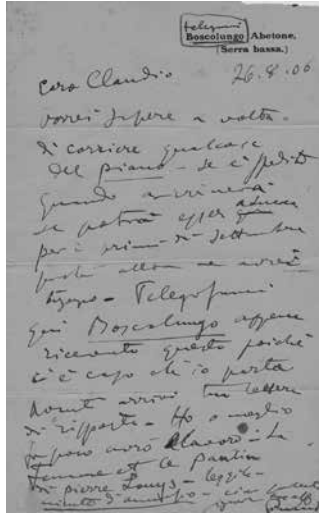 telegrammi
Boscolungo Abetone,
(Serra bassa.)
26.8.06
Caro Claudio
vorrei sapere a volta
di corriere qualcosa
del piano - se è spedito
quando arriverà
se potrà esser
per i primi di settembre
perché allora ne avrei
bisogno - Telegrafami
qui Boscolungo appena
ricevuto questa poichè
c'è caso che io parta
avanti arrivi tua lettera
di risposta - Ho o meglio
fra poco avrò lavoro - La
Femme et le Pantin
di Pierre Louys - leggilo -